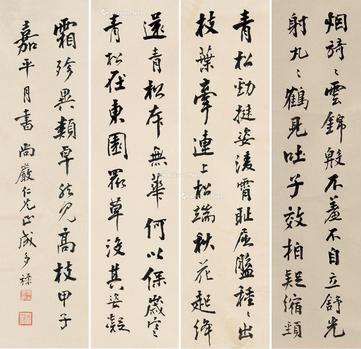 烟旖〻雲錦殷不羞不自立舒光
射丸〻鶴見吐子效柏疑縮頸
青松勁挺姿凌霄恥屈盤種〻出
枝葉牽連上松端秋花起絳
還青松本無華何以保歲寒
青松在東園眾草沒其姿凝
霜殄異類卓然見高枝甲子
嘉平月書 尚嚴仁兄正 成多祿